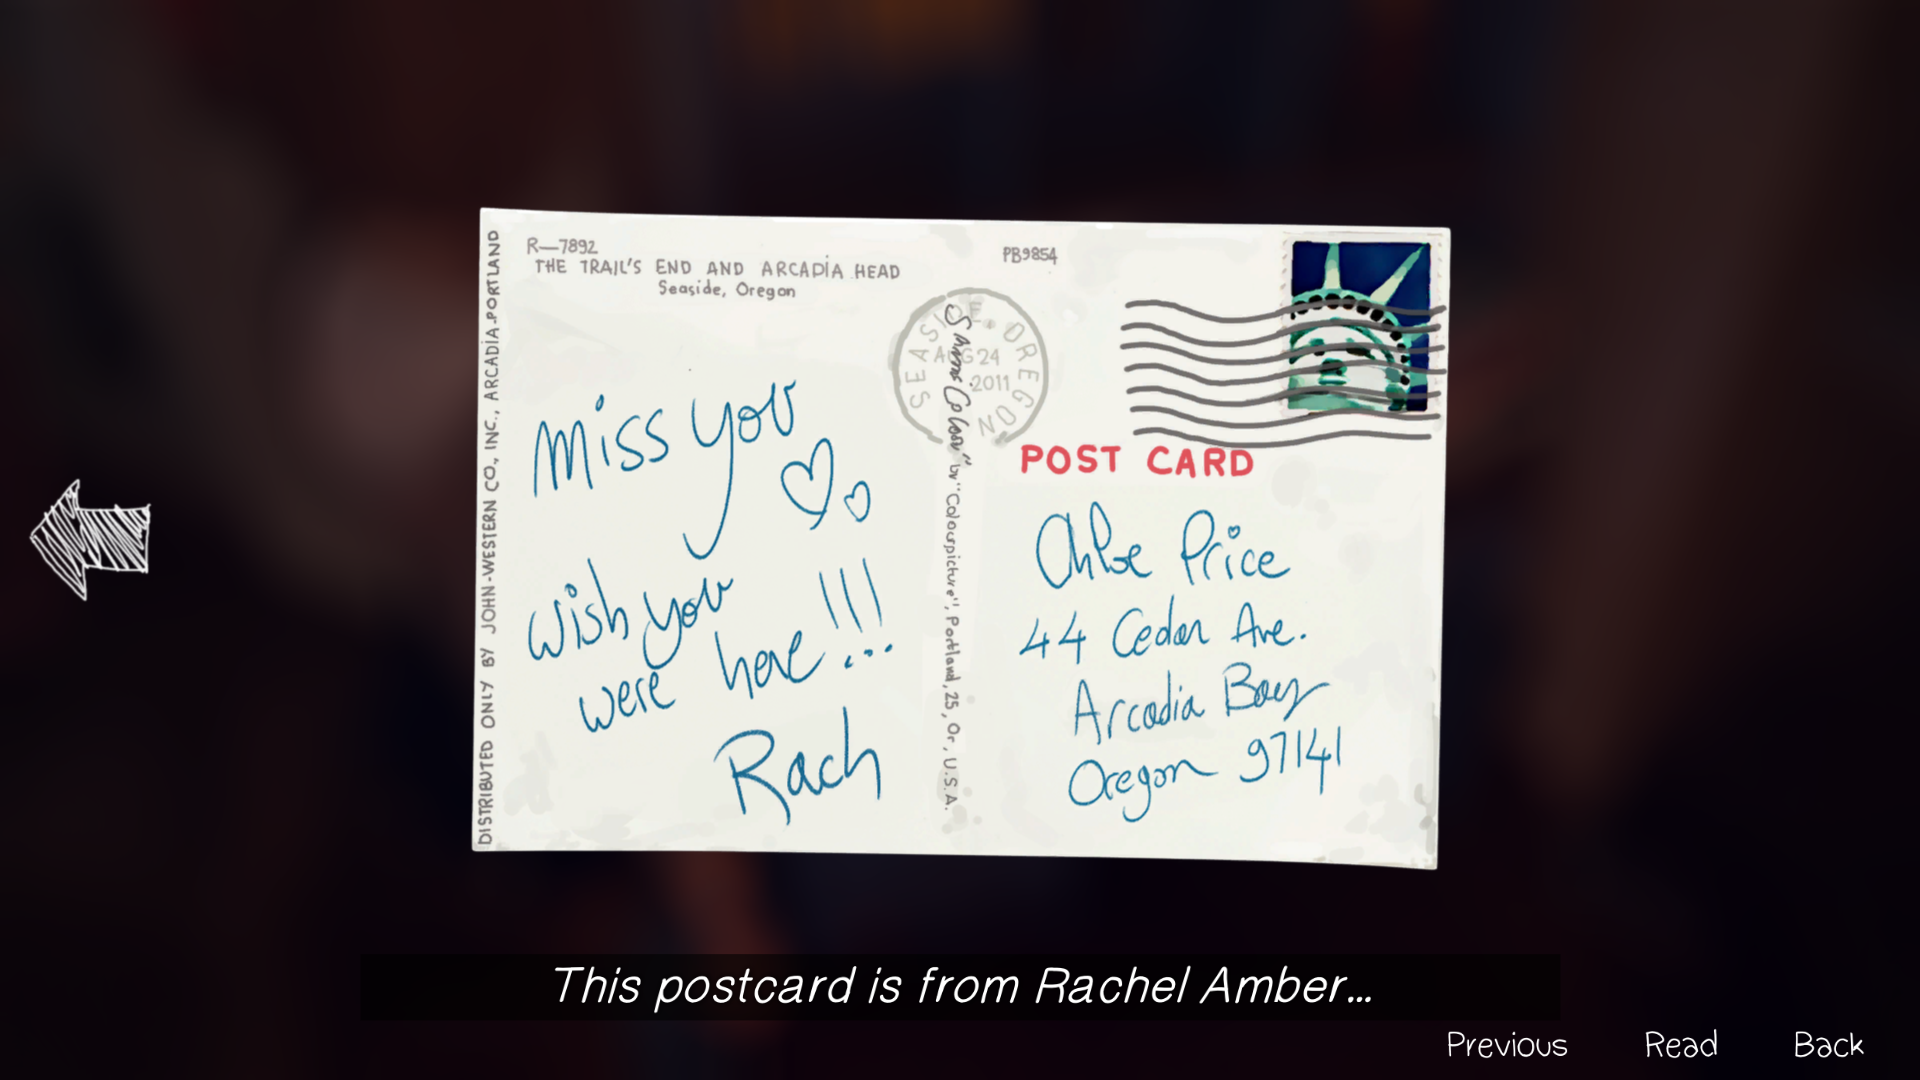 R—7892
THE TRAIL'S END AND ARCADIA HEAD
Seaside, Oregon
PB9854
DISTRIBUTED ONLY BY JOHN-WESTERN CO., INC., ARCADIA-PORTLAND
SEASIDE, OREGON
AUG 24
2011
by "Colourpicture", Portland, 25, Or, U.S.A.
Miss you
Wish you
were here!!!
Rach
POST CARD
Chloe Price
44 Cedar Ave.
Arcadia Bay
Oregon 97141
This postcard is from Rachel Amber...
Previous Read Back